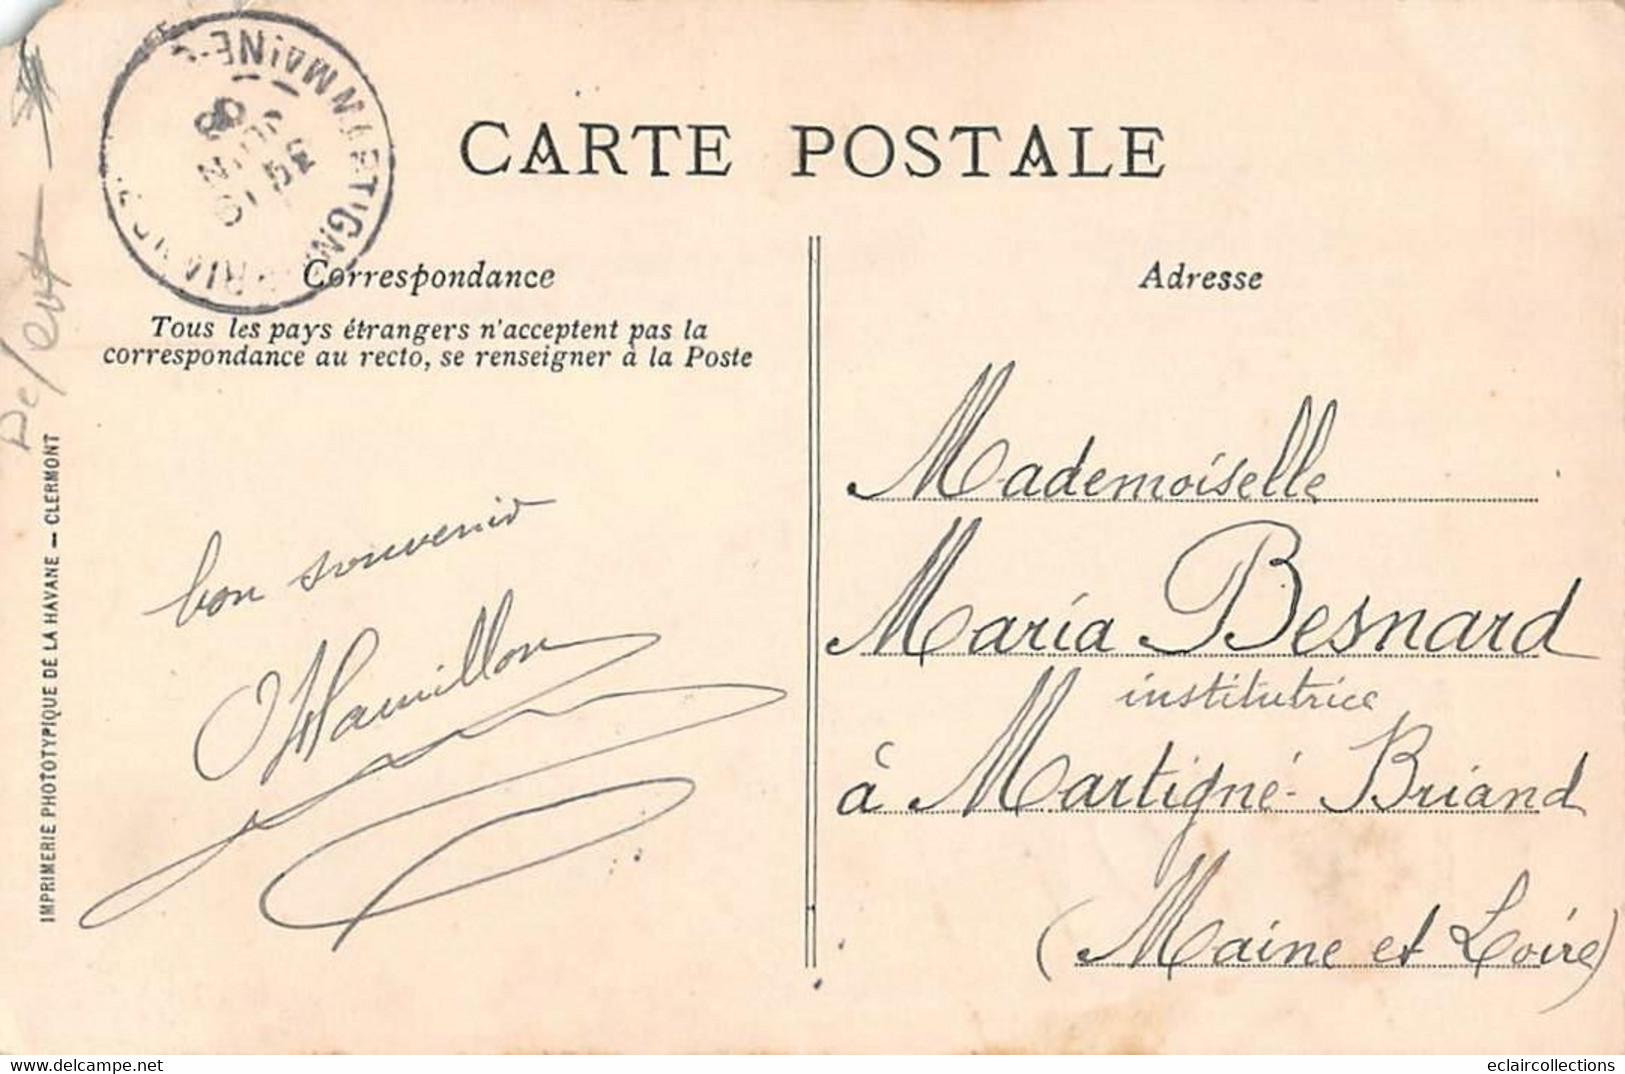 CARTE POSTALE
Correspondance
Tous les pays étrangers n'acceptent pas la
correspondance au recto, se renseigner à la Poste
Adresse
bon souvenir
Mademoiselle
Maria Besnard
institutrice
à Martigné-Briand
(Maine et Loire)
IMPRIMERIE PHOTOTYPIQUE DE LA HAVANE — CLERMONT
www.delcampe.net
eclaircollections